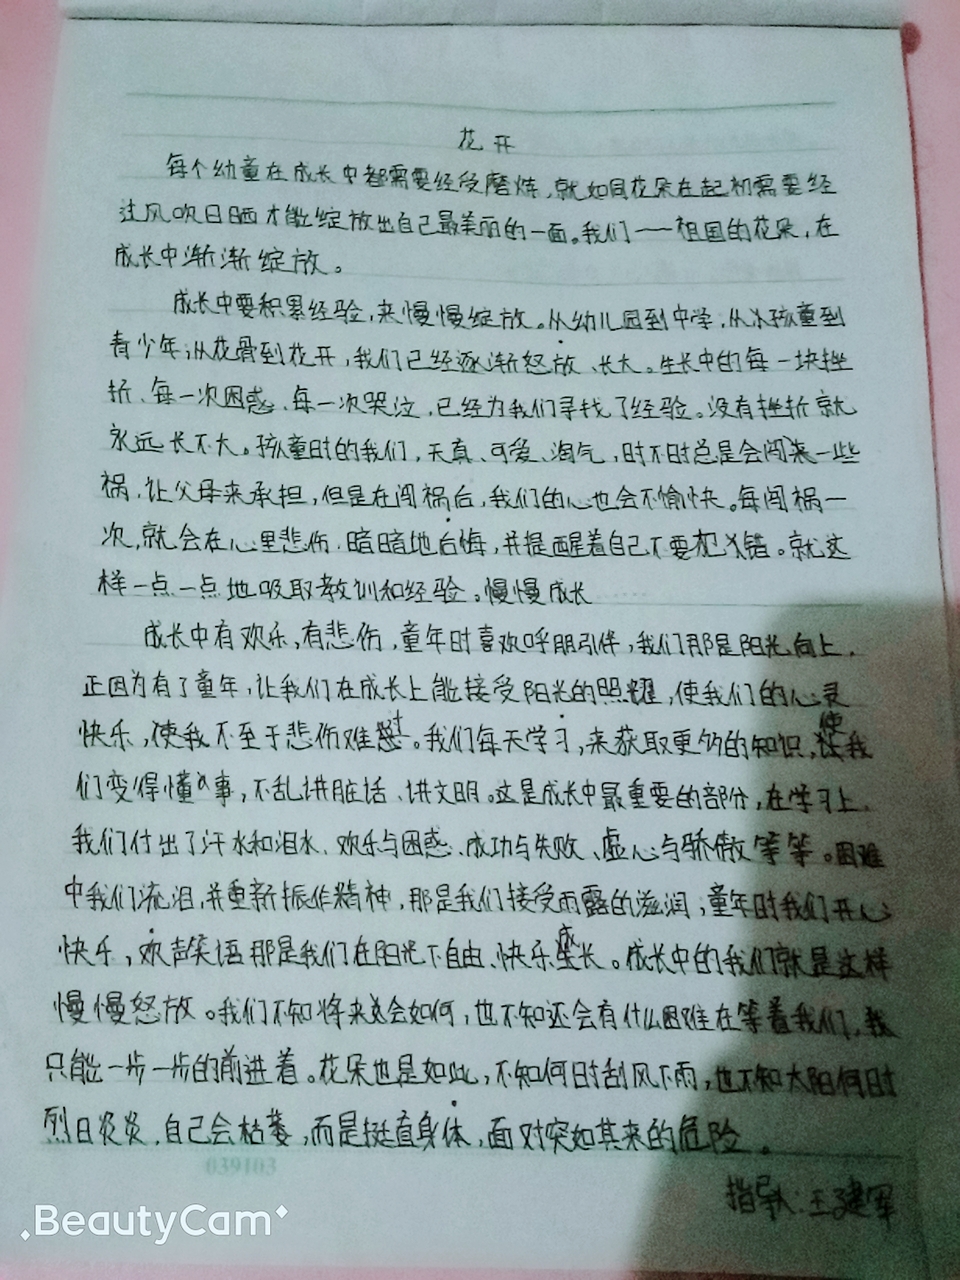 花开
每个幼童在成长中都需要经受磨炼，就如同花朵在起初需要经
过风吹日晒才能绽放出自己最美丽的一面。我们——祖国的花朵，在
成长中渐渐绽放。
成长中要积累经验，来慢慢绽放。从幼儿园到中学，从小孩童到
青少年，从花骨到花开，我们已经逐渐怒放、长大。生长中的每一块挫
折、每一次困惑、每一次哭泣，已经为我们寻找了经验。没有挫折就
永远长不大。孩童时的我们，天真、可爱、淘气，时不时总是会闯来一些
祸，让父母来承担，但是在闯祸后，我们的心也会不愉快。每闯祸一
次，就会在心里悲伤，暗暗地后悔，并提醒着自己不要犯错。就这
样一点一点地吸取教训和经验。慢慢成长……
成长中有欢乐，有悲伤，童年时喜欢呼朋引伴，我们那是阳光向上，
正因为有了童年，让我们在成长上能接受阳光的照耀，使我们的心灵
快乐，使我不至于悲伤难过。我们每天学习，来获取更多的知识，使我
们变得懂事，不乱讲脏话、讲文明。这是成长中最重要的部分，在学习上，
我们付出了汗水和泪水、欢乐与困惑、成功与失败、虚心与骄傲等等。困难
中我们流泪，并重新振作精神，那是我们接受雨露的滋润；童年时我们开心
快乐，欢声笑语那是我们在阳光下自由、快乐成长。成长中的我们就是这样
慢慢怒放。我们不知将来会如何，也不知还会有什么困难在等着我们，我
只能一步一步的前进着。花朵也是如此，不知何时刮风下雨，也不知太阳何时
烈日炎炎，自己会枯萎，而是挺直身体，面对突如其来的危险。
039103
指导：王建军
BeautyCam